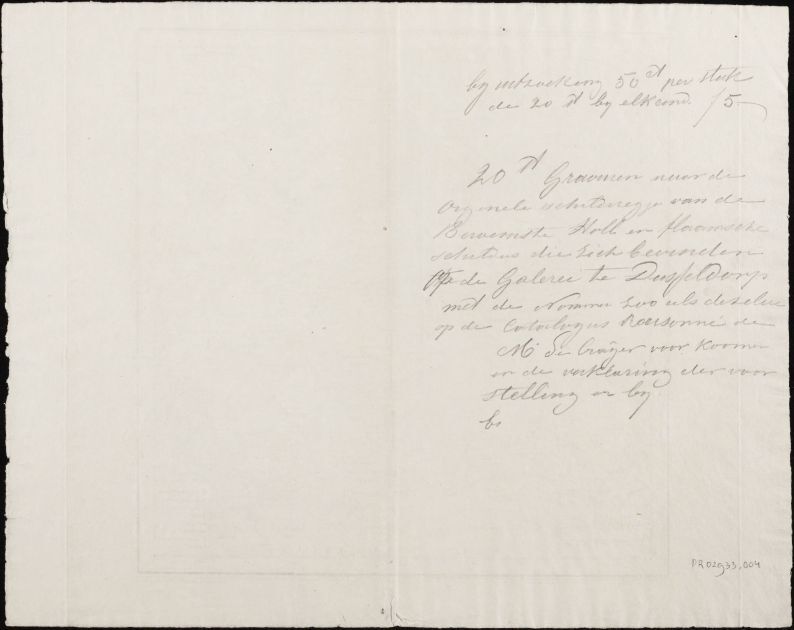 by uitzoeking 50 ct per stuk
de 20 st by elkand. f 5-
20 st Gravuren naar de
Originele schilderyge van de
Beroemste Holl en flaamsche
schilders die zich bevinden
Op de Galerei te Dusseldorp
met de Nommer zoo als dezelve
op de Catalogus Raisonné de
Mr De voor Komen
en de verklaring der voor
stelling er by
be
DR02933.004